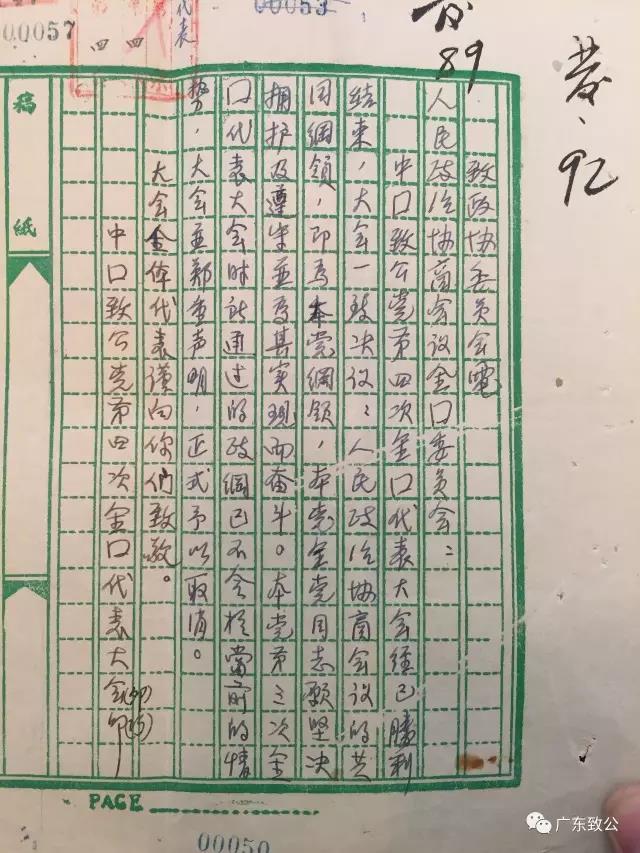 发、92
发
89
00053
代表
四四
00057
致政协委员会電
人民政治协商会议全口委员会：
中口致公党第四次全口代表大会经已勝利
结束，大会一致决议：人民政治协商会议的共
同綱領，即為本党綱領，本党全党同志愿坚决
拥护及遵守並為其实现而奋斗。本党第三次全
口代表大会时所通过的政綱已不合於當前的情
势，大会並郑重声明，正式予以取消。
大会全体代表谨向你們致敬。
中口致公党第四次全口代表大会叩
稿紙
PAGE
00050
广东致公